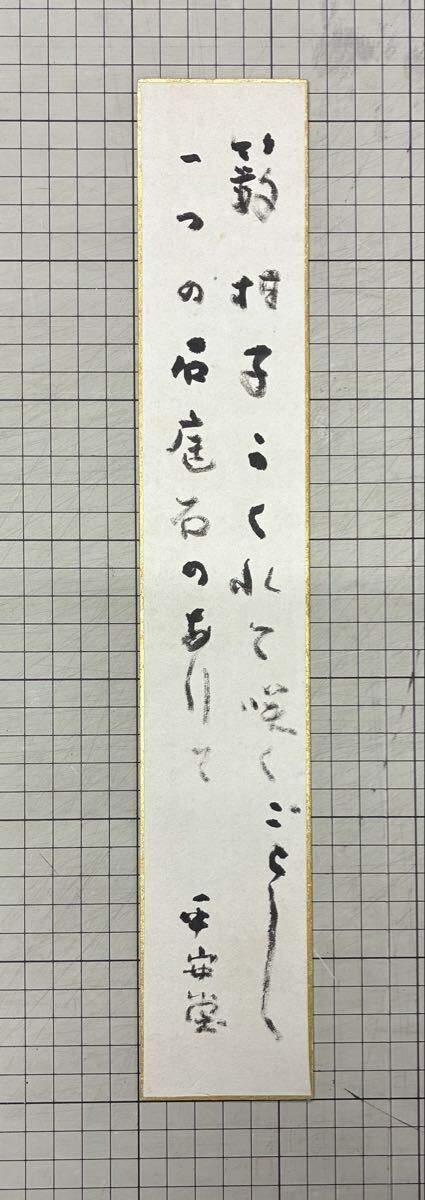 藪柑子かくれて咲くごとし
一つの名庭石のありて
平安堂